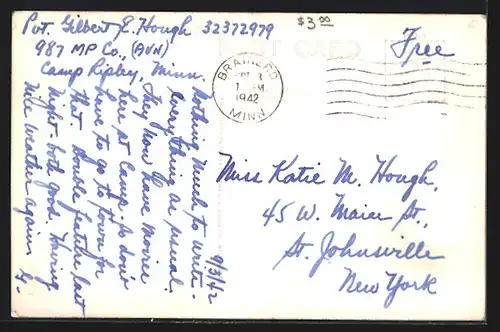 Pvt. Gilbert E. Hough 32372979
987 MP Co., (AVN)
Camp Ripley, Minn.
$3.00
POST CARD
Free
BRAINERD
1942
MINN
9/3/42
Nothing much to write -
everything as usual.
They now have movies
here at camp - so don't
have to go to town for
that. Double feature last
night - both good. Having
nice weather again
G -
Miss Katie M. Hough,
45 W. Maier St.,
St. Johnsville
New York